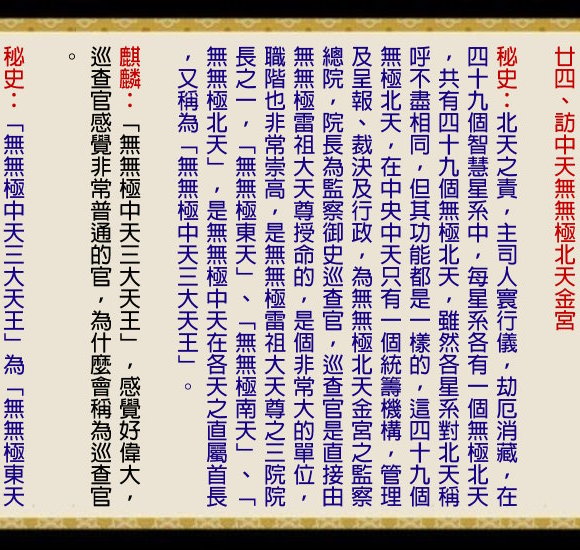 廿四、訪中天無無極北天金宮
秘史：北天之責，主司人寰行儀，劫厄消藏，在
四十九個智慧星系中，每星系各有一個無極北天
，共有四十九個無極北天，雖然各星系對北天稱
呼不盡相同，但其功能都是一樣的，這四十九個
無極北天，在中央中天只有一個統籌機構，管理
及呈報、裁決及行政，為無無極北天金宮之監察
總院，院長為監察御史巡查官，巡查官是直接由
無無極雷祖大天尊授命的，是個非常大的單位，
職階也非常崇高，是無無極雷祖大天尊之三院院
長之一，「無無極東天」、「無無極南天」、「
無無極北天」，是無無極中天在各天之直屬首長
，又稱為「無無極中天三大天王」。
麒麟：「無無極中天三大天王」，感覺好偉大，
巡查官感覺非常普通的官，為什麼會稱為巡查官
。
秘史：「無無極中天三大天王」為「無無極東天